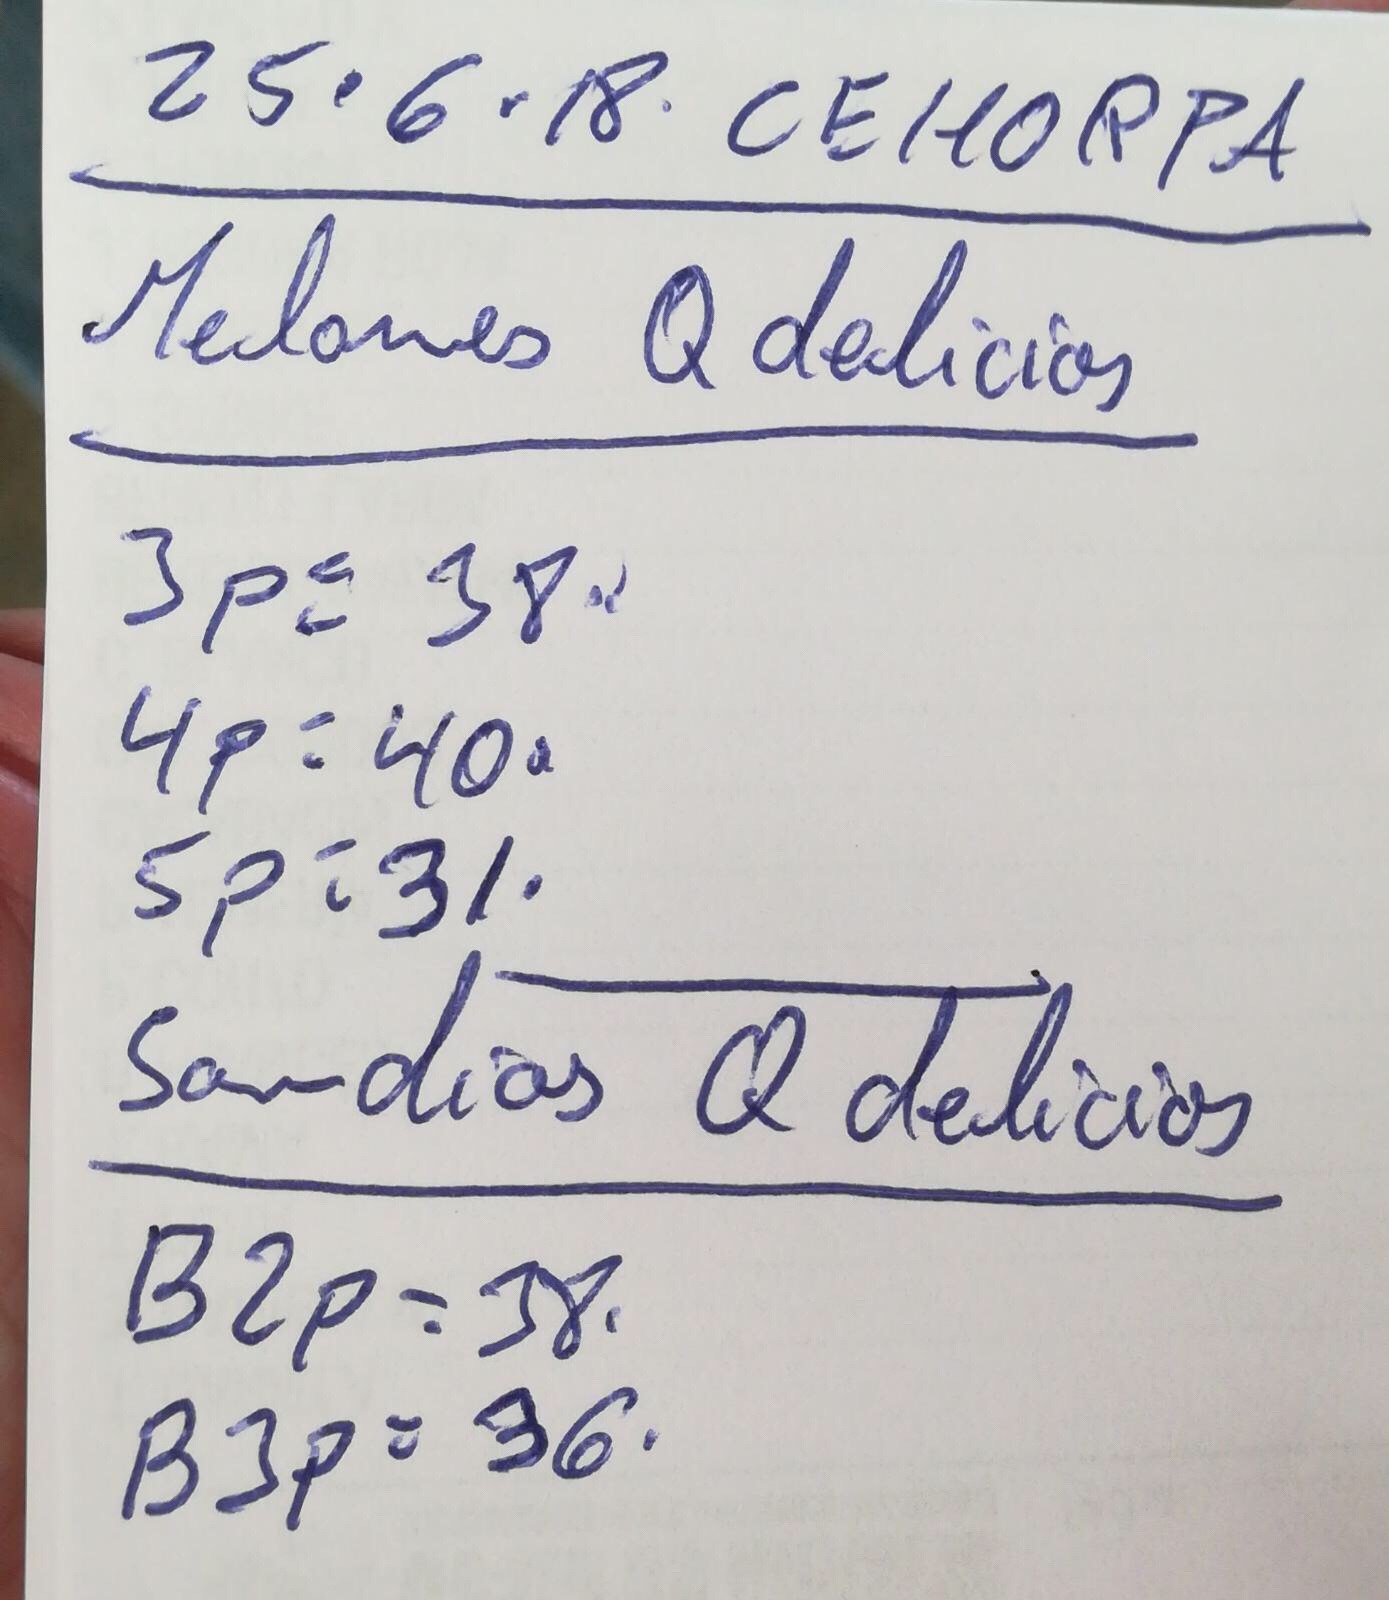 25.6.18. CEHORPA
Melones Q delicias
3p = 38.
4p = 40.
5p = 31.
Sandias Q delicias
B2p = 38.
B3p = 36.